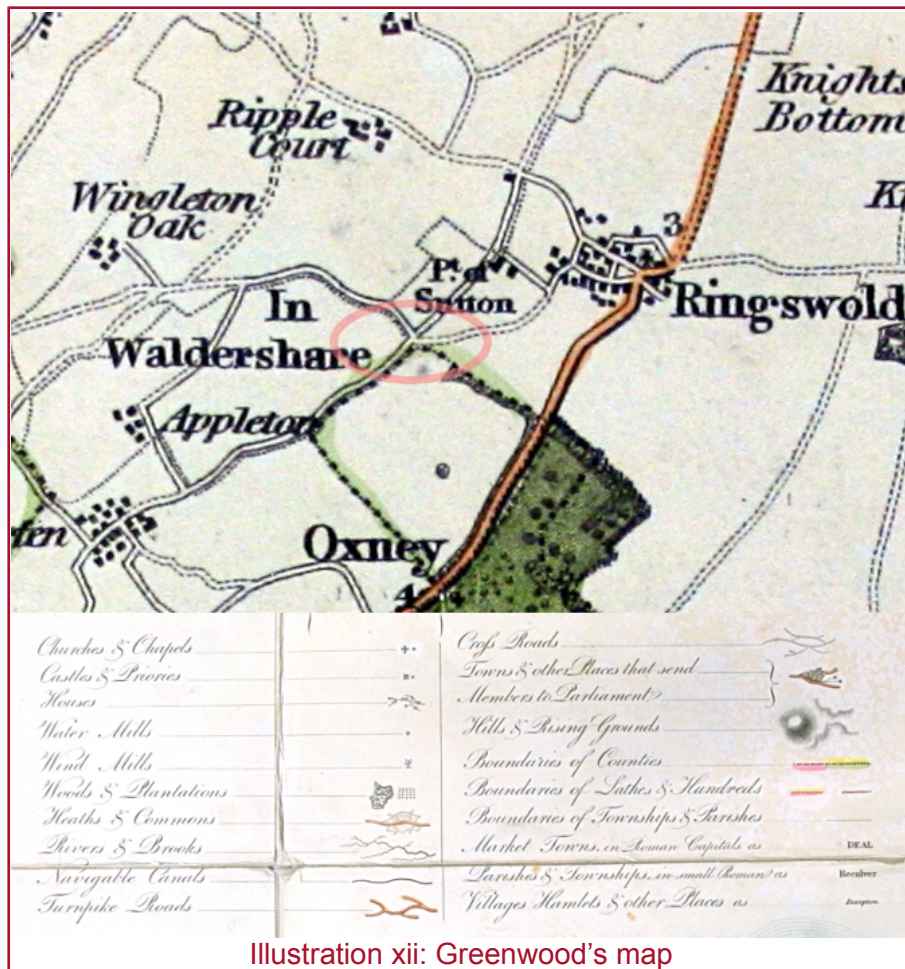 Knights
Bottom
Ripple
Court
Wingleton
Oak
3
Pt. of
Sutton
In
Waldershare
Ringswold
Appleton
Oxney
4
Churches & Chapels
Castles & Priories
Houses
Water Mills
Wind Mills
Woods & Plantations
Heaths & Commons
Rivers & Brooks
Navigable Canals
Turnpike Roads
Cross Roads
Towns & other Places that send
Members to Parliament
Hills & Rising Grounds
Boundaries of Counties
Boundaries of Lathes & Hundreds
Boundaries of Townships & Parishes
Market Towns, in Roman Capitals as DEAL
Parishes & Townships, in small Roman as Reculver
Villages Hamlets & other Places as
Illustration xii: Greenwood's map